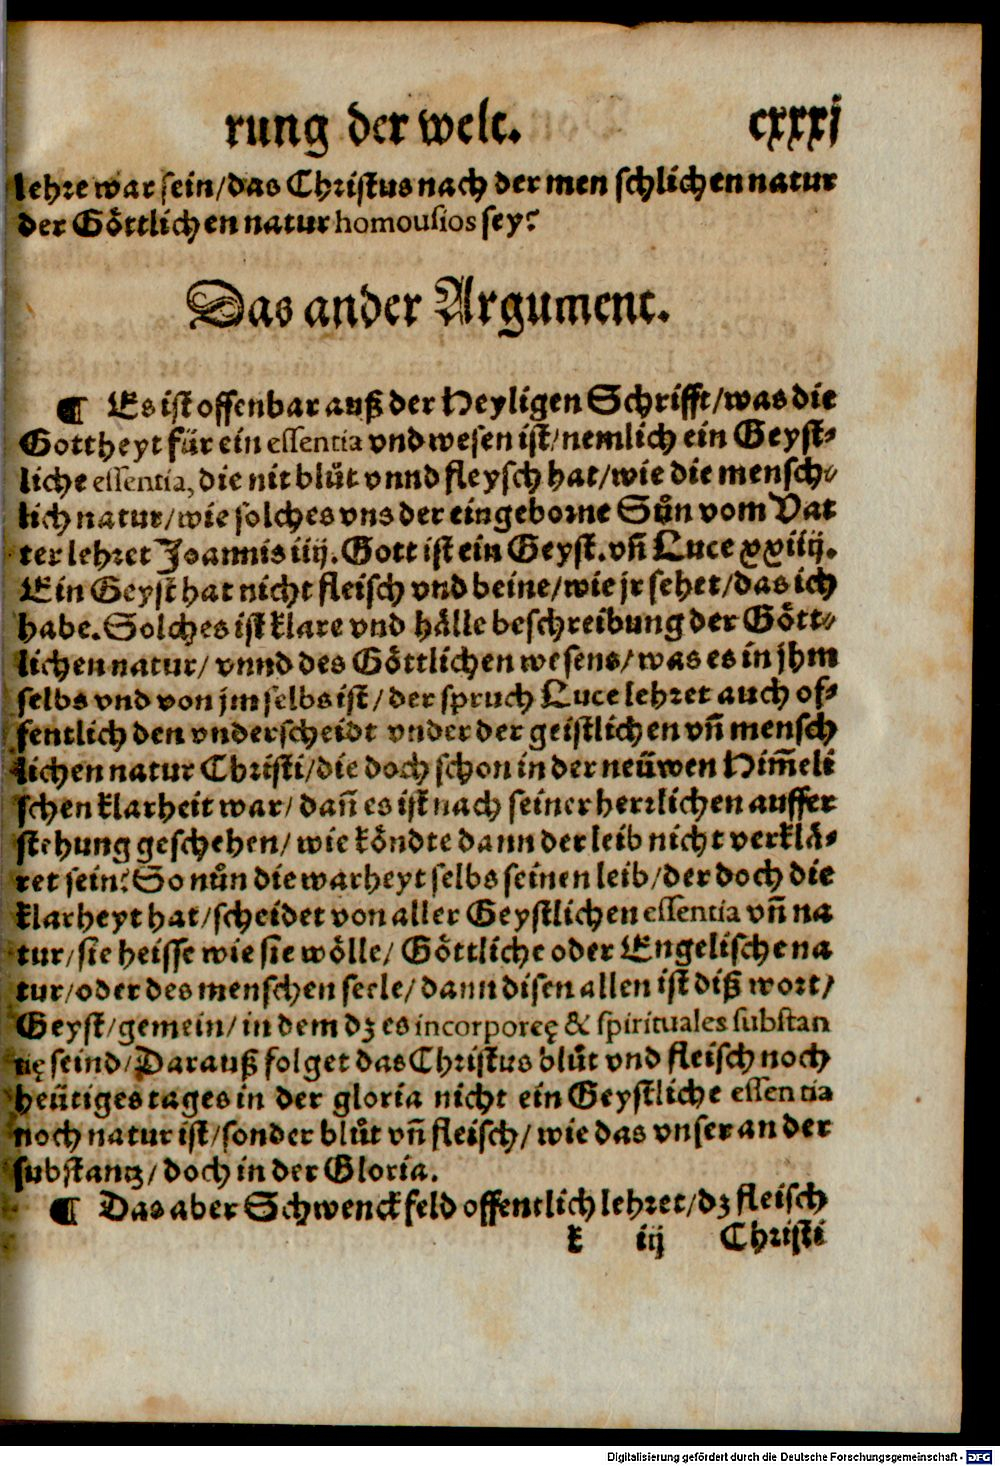 rung der welt. cxxxj
lehre war sein/das Christus nach der men schlichen natur
der Göttlichen natur homousios sey?
Das ander Argument.
¶ Es ist offenbar auß der Heyligen Schrifft/was die
Gottheyt für ein essentia vnd wesen ist/nemlich ein Geyst-
liche essentia, die nit blůt vnnd fleysch hat/wie die mensch-
lich natur/wie solches vns der eingeborne Sůn vom Vat
ter lehret Joannis iiij. Gott ist ein Geyst. vñ Luce xxiiij.
Ein Geyst hat nicht fleisch vnd beine/wie jr sehet/das ich
habe. Solches ist klare vnd hälle beschreibung der Gött-
lichen natur/ vnnd des Göttlichen wesens/was es in jhm
selbs vnd von jm selbs ist/der spruch Luce lehret auch of-
fentlich den vnderscheidt vnder der geistlichen vñ mensch
lichen natur Christi/die doch schon in der neüwen Him̃eli
schen klarheit war/dañ es ist nach seiner herrlichen auffer
stehung geschehen/wie köndte dann der leib nicht verklä-
ret sein? So nůn die warheyt selbs seinen leib/der doch die
klarheyt hat/scheidet von aller Geystlichen essentia vñ na
tur/sie heisse wie sie wölle/ Göttliche oder Engelische na
tur/oder des menschen seele/dann disen allen ist diß wort/
Geyst/gemein/in dem dz es incorporeę & spirituales substan
tię seind/Darauß folget das Christus blůt vnd fleisch noch
heütiges tages in der gloria nicht ein Geystliche essentia
noch natur ist/sonder blůt vñ fleisch/wie das vnser an der
substantz/doch in der Gloria.
¶ Das aber Schwenckfeld offentlich lehret/dz fleisch
k iij Christi
Digitalisierung gefördert durch die Deutsche Forschungsgemeinschaft - DFG